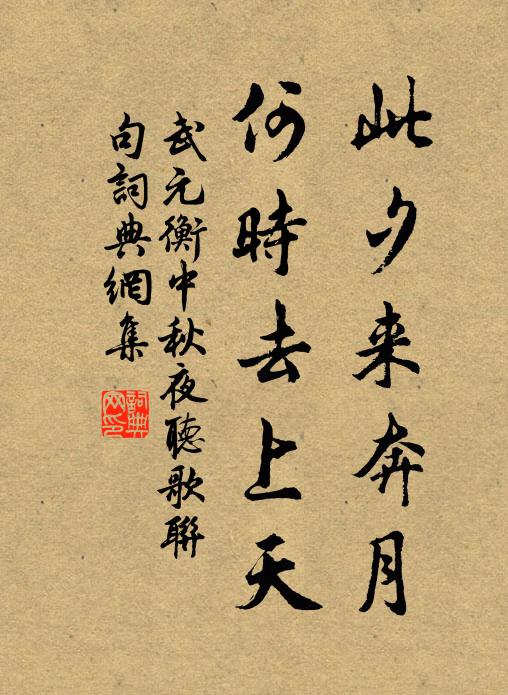 此夕来奔月
何時去上天
武元衡中秋夜聽歌聯
句詞典網集
詞典
网印